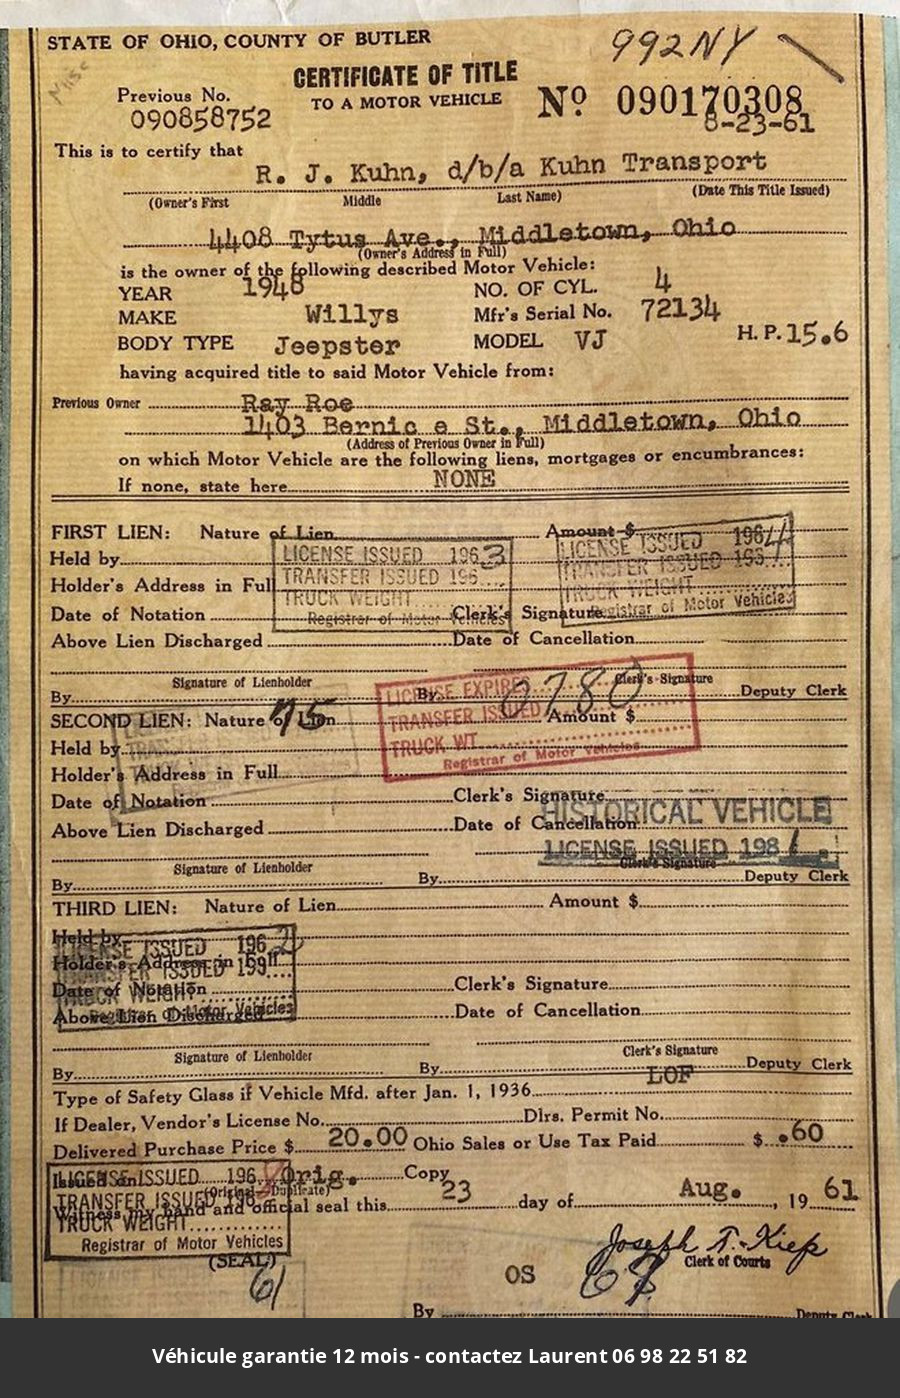 STATE OF OHIO, COUNTY OF BUTLER
992NY
CERTIFICATE OF TITLE
TO A MOTOR VEHICLE
Previous No.
090858752
Nº 090170308
8-23-61
This is to certify that
R. J. Kuhn, d/b/a Kuhn Transport
(Owner's First Middle Last Name) (Date This Title Issued)
4408 Tytus Ave., Middletown, Ohio
(Owner's Address in Full)
is the owner of the following described Motor Vehicle:
YEAR 1948 NO. OF CYL. 4
MAKE Willys Mfr's Serial No. 72134
BODY TYPE Jeepster MODEL VJ H. P. 15.6
having acquired title to said Motor Vehicle from:
Previous Owner Ray Roe
1403 Bernic e St., Middletown, Ohio
(Address of Previous Owner in Full)
on which Motor Vehicle are the following liens, mortgages or encumbrances:
If none, state here NONE
FIRST LIEN: Nature of Lien Amount $
Held by
Holder's Address in Full
Date of Notation Clerk's Signature
Above Lien Discharged Date of Cancellation
LICENSE ISSUED 1963
TRANSFER ISSUED 196
TRUCK WEIGHT
Registrar of Motor Vehicles
LICENSE ISSUED 1964
TRANSFER ISSUED 196
TRUCK WEIGHT
Registrar of Motor Vehicles
Signature of Lienholder Clerk's Signature
By By Deputy Clerk
LICENSE EXPIRE 0780
TRANSFER ISSUED
TRUCK WT.
Registrar of Motor Vehicles
SECOND LIEN: Nature of Lien Amount $
75
Held by
Holder's Address in Full
Date of Notation Clerk's Signature
Above Lien Discharged Date of Cancellation
HISTORICAL VEHICLE
LICENSE ISSUED 1981
Signature of Lienholder Clerk's Signature
By By Deputy Clerk
THIRD LIEN: Nature of Lien Amount $
Held by
Holder's Address in Full
Date of Notation Clerk's Signature
Above Lien Discharged Date of Cancellation
LICENSE ISSUED 1962
TRANSFER ISSUED 196
TRUCK WEIGHT
Registrar of Motor Vehicles
Signature of Lienholder Clerk's Signature
By By Deputy Clerk
Type of Safety Glass if Vehicle Mfd. after Jan. 1, 1936 LOF
If Dealer, Vendor's License No. Dlrs. Permit No.
Delivered Purchase Price $ 20.00 Ohio Sales or Use Tax Paid $ .60
Issued on Orig. Copy
(Original-Duplicate)
Witness my hand and official seal this 23 day of Aug., 19 61
LICENSE ISSUED 196
TRANSFER ISSUED 196
TRUCK WEIGHT
Registrar of Motor Vehicles
(SEAL)
61
Joseph T. Kiep
Clerk of Courts
OS
By Deputy Clerk
Véhicule garantie 12 mois - contactez Laurent 06 98 22 51 82